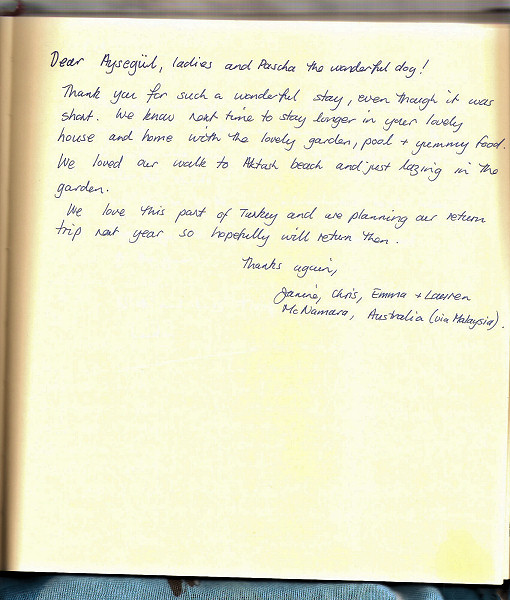 Dear Ayşegül, ladies and Pascha the wonderful dog!
Thank you for such a wonderful stay, even though it was
short. We know next time to stay longer in your lovely
house and home with the lovely garden, pool + yummy food.
We loved our walk to Aktash beach and just lazing in the
garden.
We love this part of Turkey and we planning our return
trip next year so hopefully will return then.
Thanks again,
Janine, Chris, Emma + Lauren
McNamara, Australia (via Malaysia).